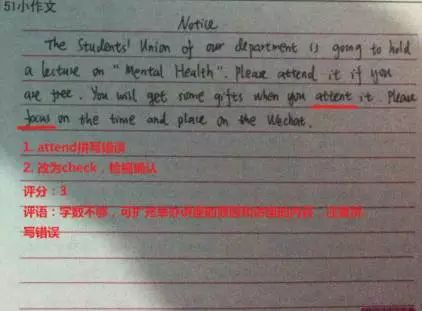 51小作文
Notice
The Students' Union of our department is going to hold
a lecture on "Mental Health". Please attend it if you
are free. You will get some gifts when you attent it. Please
focus on the time and place on the Wechat.
1. attend拼写错误
2. 改为check，检视确认
评分：3
评语：字数不够，可扩充举办讲座的原因和讲座的内容，注意拼
写错误